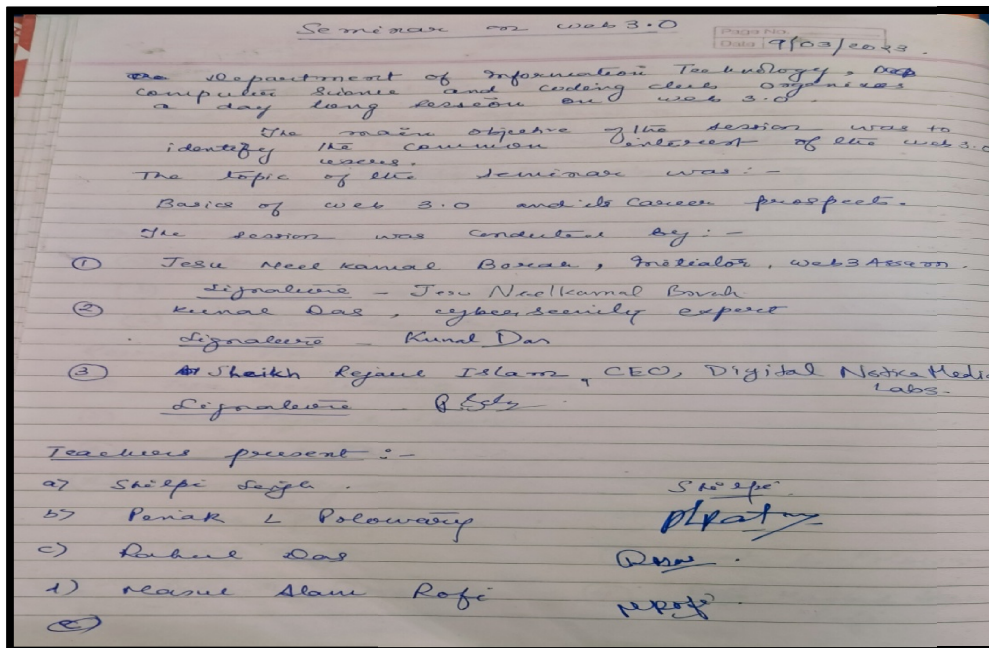 Seminar on web 3.0
Page No.
Date 9/03/2023.
Department of Information Technology,
computer science and coding club organises
a day long session on web 3.0.
The main objective of the session was to
identify the common interest of the web 3.0
users.
The topic of the seminar was :-
Basics of web 3.0 and its career prospects.
The session was conducted by :-
① Jesu Neel kamal Borah, Initiator, web3Assam.
Signature - Jesu Neelkamal Borah
② Kunal Das, cybersecurity expert
Signature - Kunal Das
③ Sheikh Rejaul Islam, CEO, Digital Media
Labs.
Signature -
Teachers present :-
a) Shilpi Shilpi
b) L
c) Rahul Das
d) Alam Rofi
e)